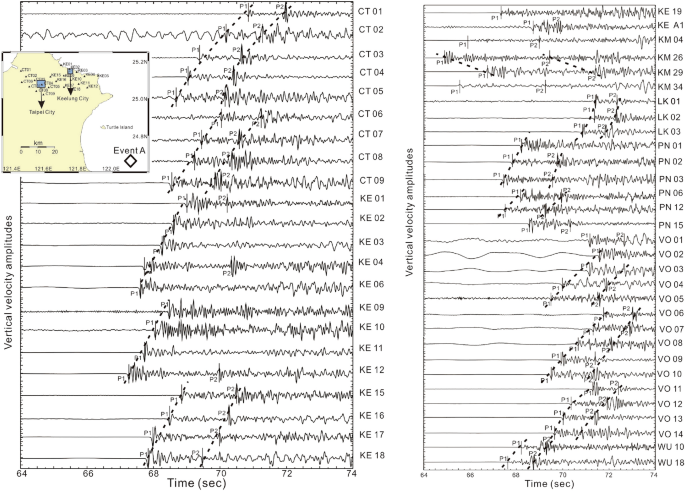 CT 01
CT 02
CT 03
CT 04
CT 05
CT 06
CT 07
CT 08
CT 09
KE 01
KE 02
KE 03
KE 04
KE 06
KE 09
KE 10
KE 11
KE 12
KE 15
KE 16
KE 17
KE 18
P1
P2
Vertical velocity amplitudes
64 66 68 70 72 74
Time (sec)
25.2N
25.0N
24.8N
Keelung City
Taipei City
Turtle Island
km
0 10 20
Event A
121.4E 121.6E 121.8E 122.0E
KE 19
KE A1
KM 04
KM 26
KM 29
KM 34
LK 01
LK 02
LK 03
PN 01
PN 02
PN 03
PN 06
PN 12
PN 15
VO 01
VO 02
VO 03
VO 04
VO 05
VO 06
VO 07
VO 08
VO 09
VO 10
VO 11
VO 12
VO 13
VO 14
WU 10
WU 18
P1
P2
Vertical velocity amplitudes
64 66 68 70 72 74
Time (sec)